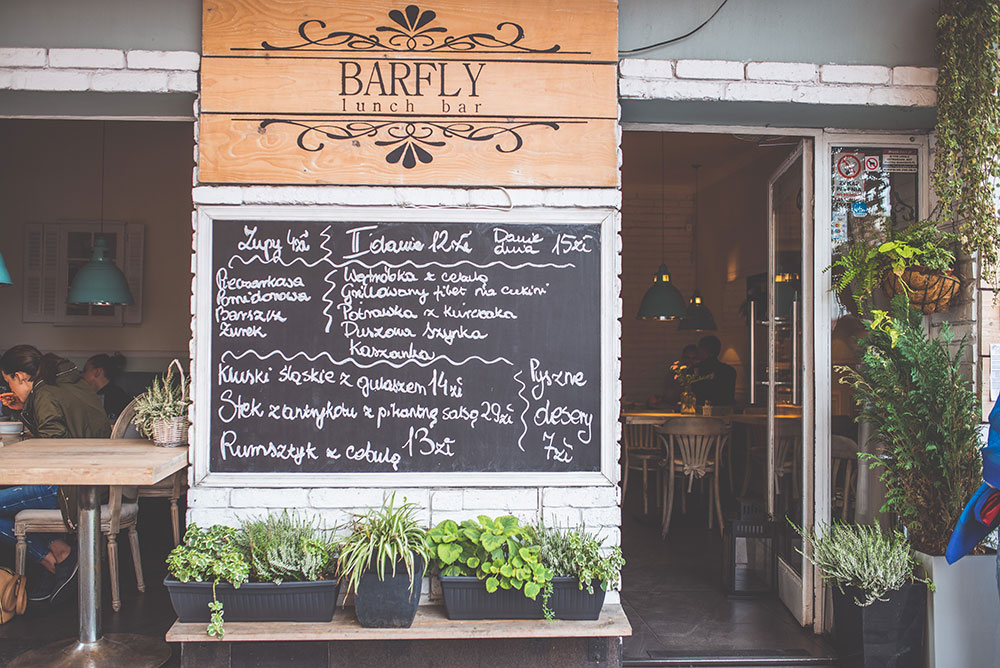 BARFLY
lunch bar
Zupy 4zł
II danie 12zł
Danie dnia 15zł
Pieczarkowa
Pomidorowa
Barszcz
Żurek
Wątróbka z cebulą
Grillowany filet na cukini
Potrawka z kurczaka
Duszona szynka
Kaszanka
Kluski śląskie z gulaszem 14zł
Stek z antrykotu z pikantną salsą 29zł
Rumsztyk z cebulą 13zł
Pyszne
desery
7zł